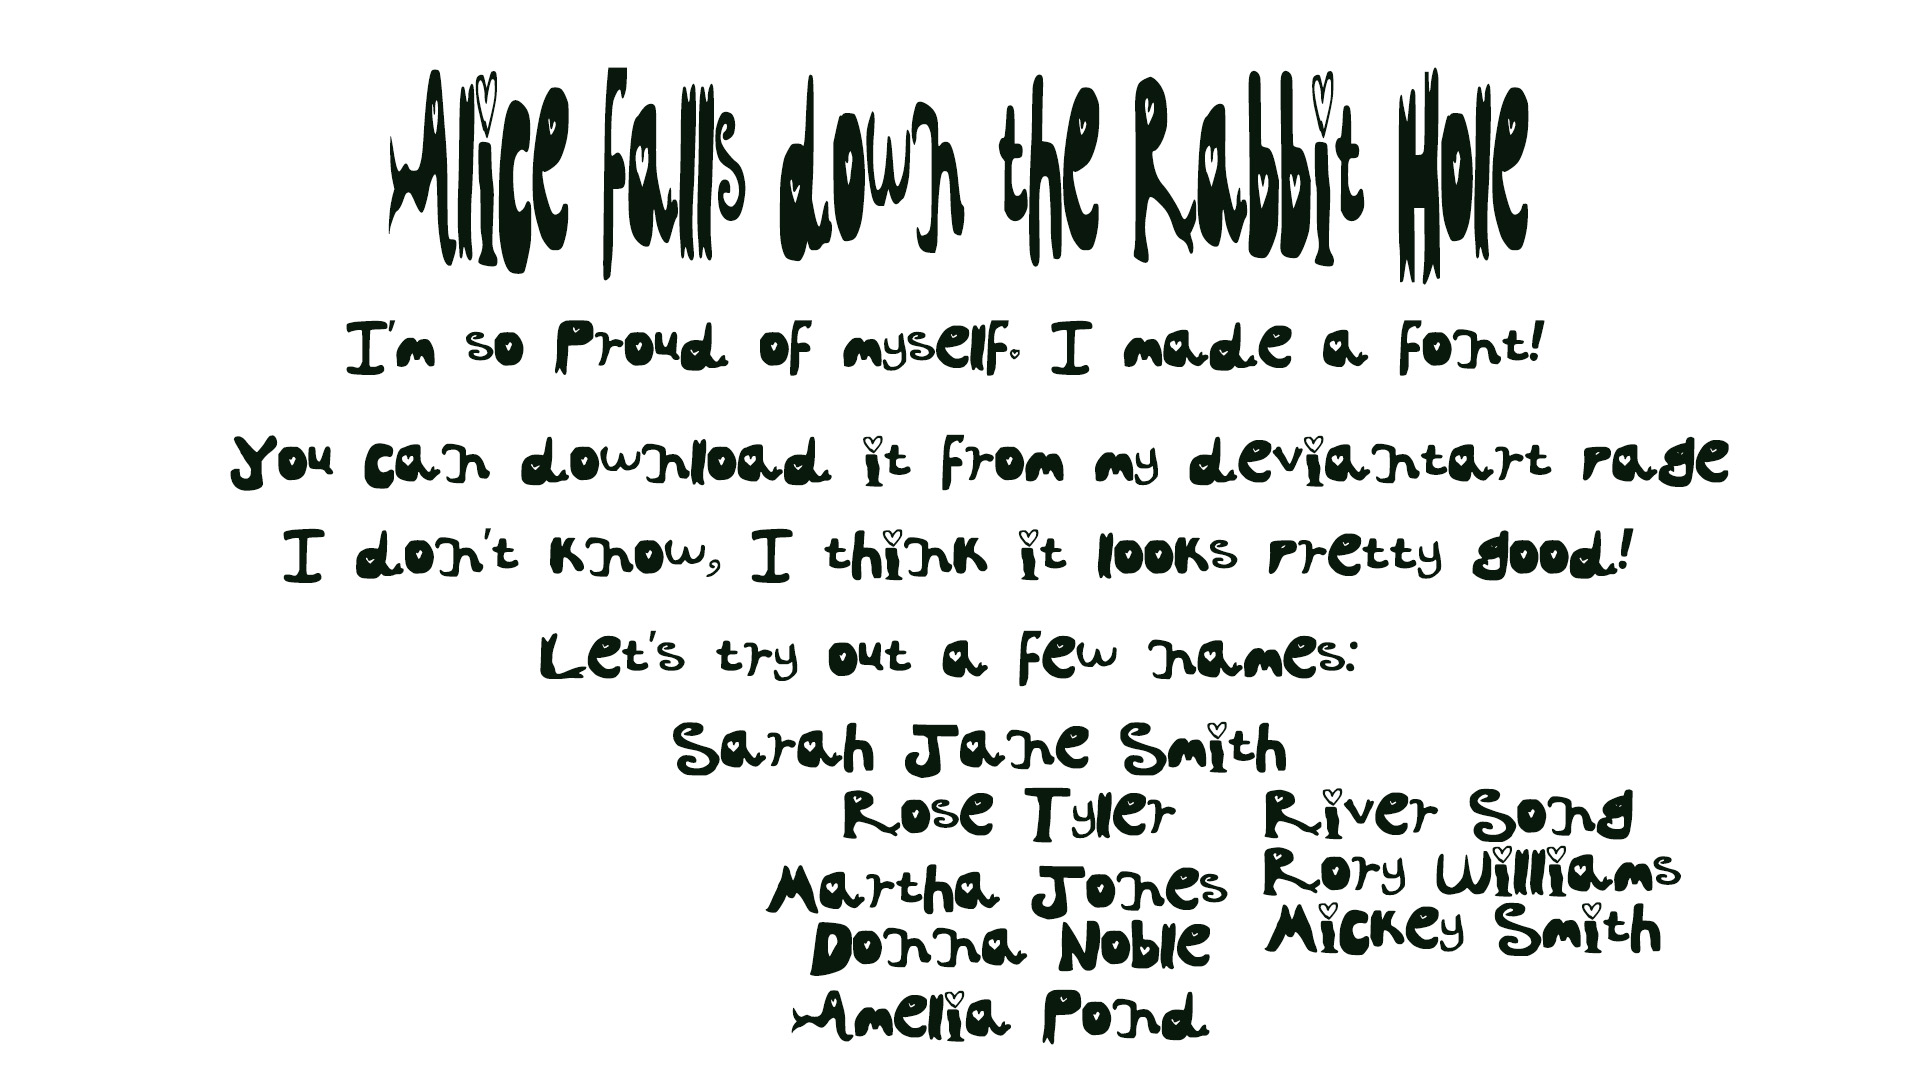 Alice Falls down the Rabbit Hole
I'm so Proud of myself. I made a font!
You can download it from my deviantart page
I don't know, I think it looks pretty good!
Let's try out a few names:
Sarah Jane Smith
Rose Tyler
Martha Jones
Donna Noble
Amelia Pond
River Song
Rory Williams
Mickey Smith